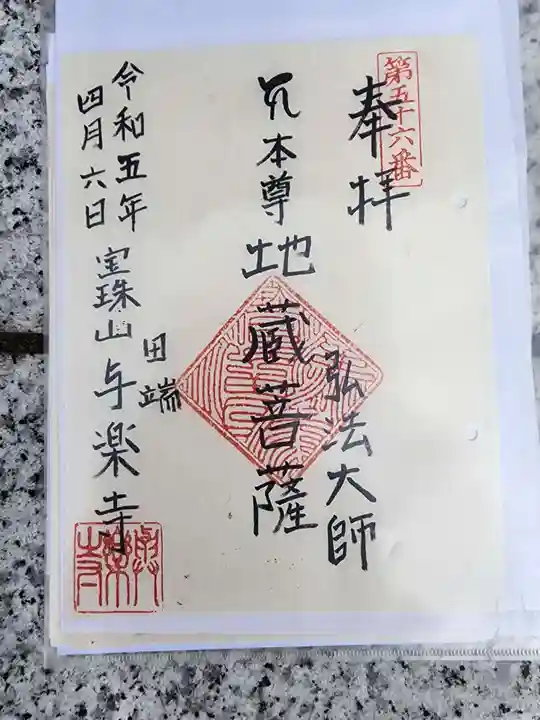 第五十六番
奉拝
弘法大師
本尊地蔵菩薩
令和五年
四月六日
田端
宝珠山与楽寺
與樂寺